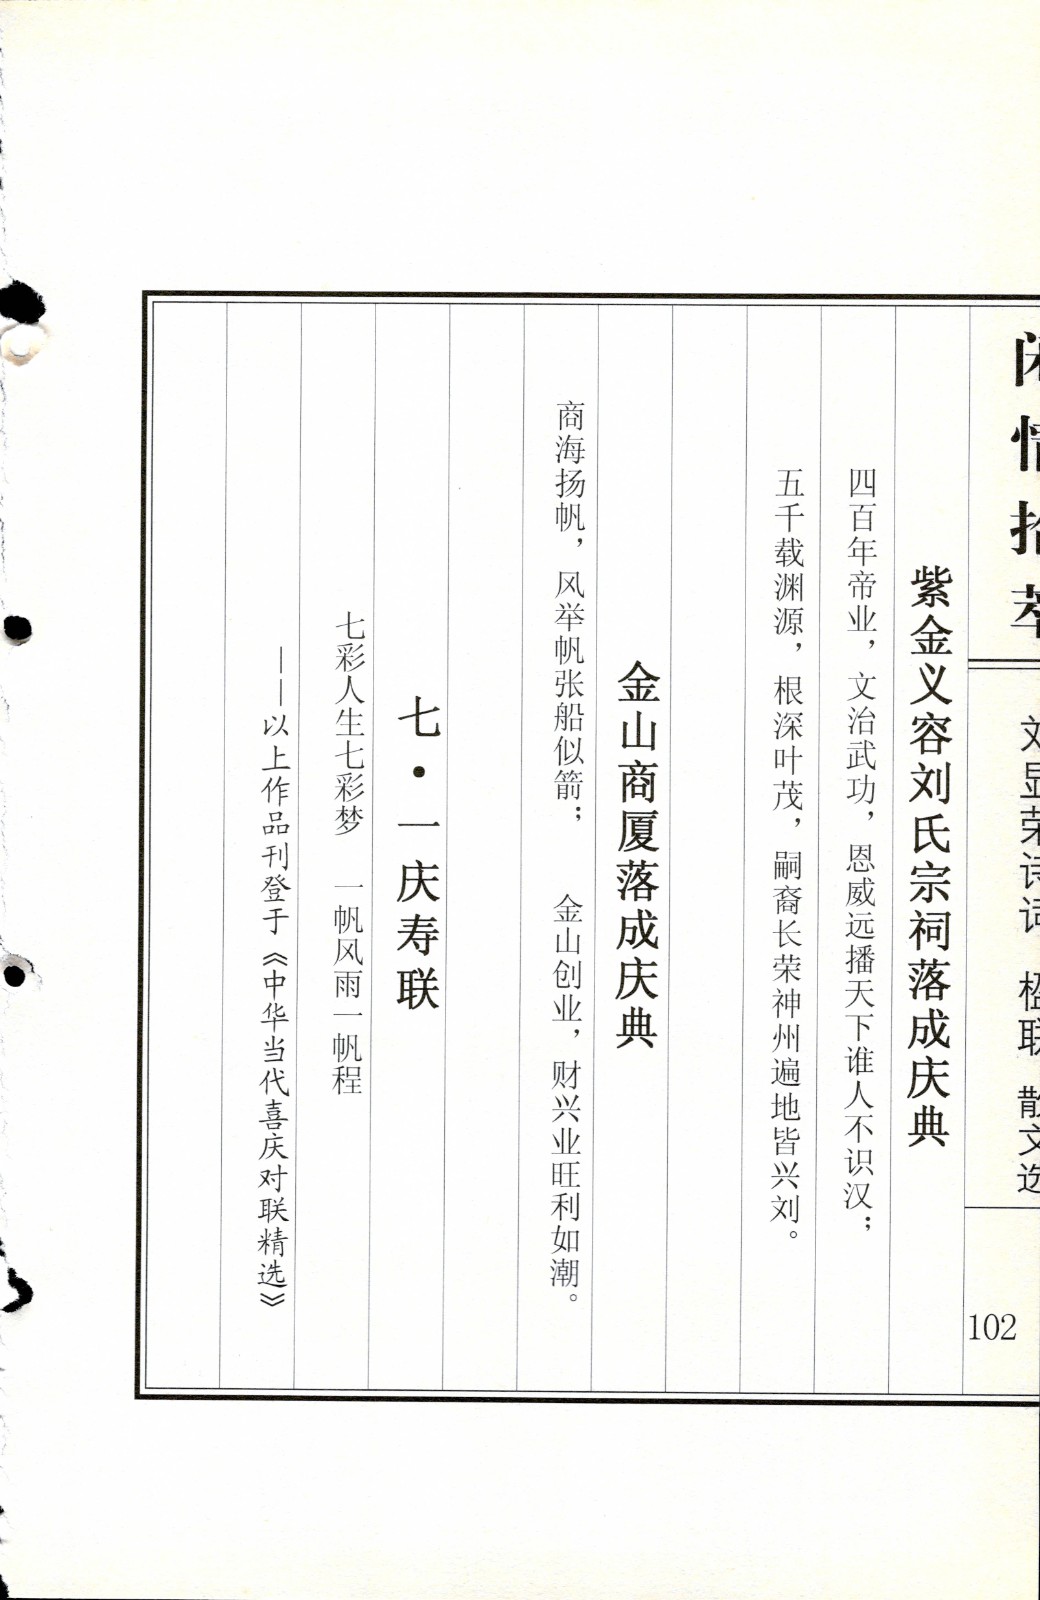 闲情拾萃
刘显荣诗词 楹联 散文选
102
紫金义容刘氏宗祠落成庆典
四百年帝业，文治武功，恩威远播天下谁人不识汉；
五千载渊源，根深叶茂，嗣裔长荣神州遍地皆兴刘。
金山商厦落成庆典
商海扬帆，风举帆张船似箭； 金山创业，财兴业旺利如潮。
七·一庆寿联
七彩人生七彩梦 一帆风雨一帆程
——以上作品刊登于《中华当代喜庆对联精选》